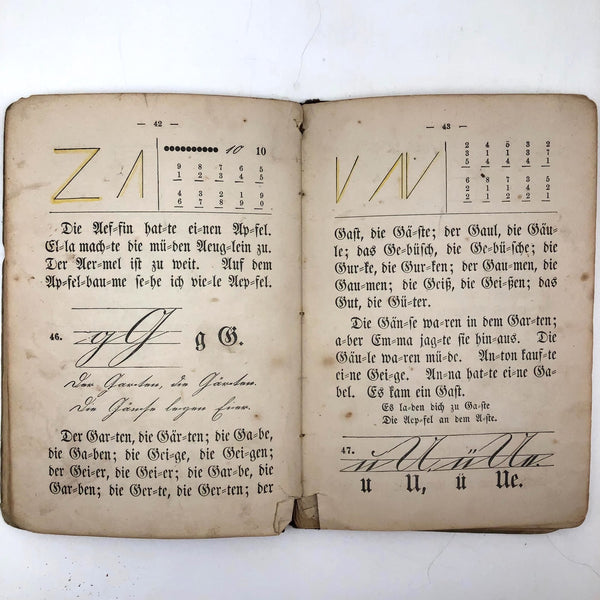 — 42 —
Z 1
10 10
9 8 7 6 5
1 2 3 4 5
4 3 2 1 9
6 7 8 9 0
Die Aef=fin hat=te ei=nen Ap=fel.
El=la mach=te die mü=den Aeug=lein zu.
Der Aer=mel ist zu weit. Auf dem
Ap=fel=bau=me se=he ich vie=le Aep=fel.
46. g G g G.
Der Gar-ten, die Gär-ten.
Die Gän-se legen Eier.
Der Gar=ten, die Gär=ten; die Ga=be,
die Ga=ben; die Gei=ge, die Gei=gen;
der Gei=er, die Gei=er; die Gar=be, die
Gar=ben; die Ger=te, die Ger=ten; der
— 43 —
V N
2 4 ö 3 2
3 1 1 3 7
5 4 4 4 1
6 8 7 3 5
2 1 1 4 2
2 1 2 2 1
Gast, die Gä=ste; der Gaul, die Gäu=
le; das Ge=büsch, die Ge=bü=sche; die
Gur=ke, die Gur=ken; der Gau=men, die
Gau=men; die Geiß, die Gei=ßen; das
Gut, die Gü=ter.
Die Gän=se wa=ren in dem Gar=ten;
a=ber Em=ma jag=te sie hin=aus. Die
Gäu=le wa=ren müde. An=ton kauf=te
ei=ne Gei=ge. An=na hat=te ei=ne Ga=
bel. Es kam ein Gast.
Es la=den dich zu Ga=ste
Die Aep=fel an dem A=ste.
47. u U ü Ue.
u U, ü Ue.